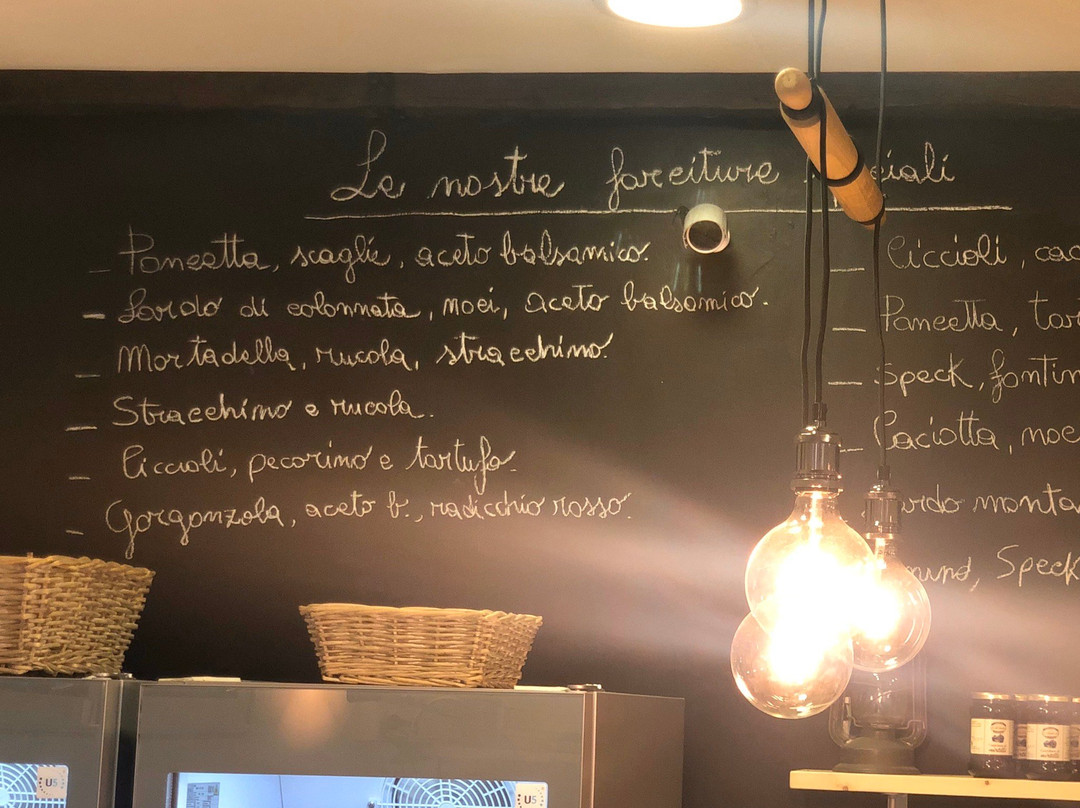 Le nostre farciture speciali
_ Pancetta, scaglie, aceto balsamico.
_ Lardo di colonnata, noci, aceto balsamico.
_ Mortadella, rucola, stracchino.
_ Stracchino e rucola.
_ Ciccioli, pecorino e tartufo.
_ Gorgonzola, aceto b., radicchio rosso.
_ Ciccioli, cac
_ Pancetta, tar
_ Speck, fontin
_ Caciotta, noc
ardo monta
Speck
U5
U5